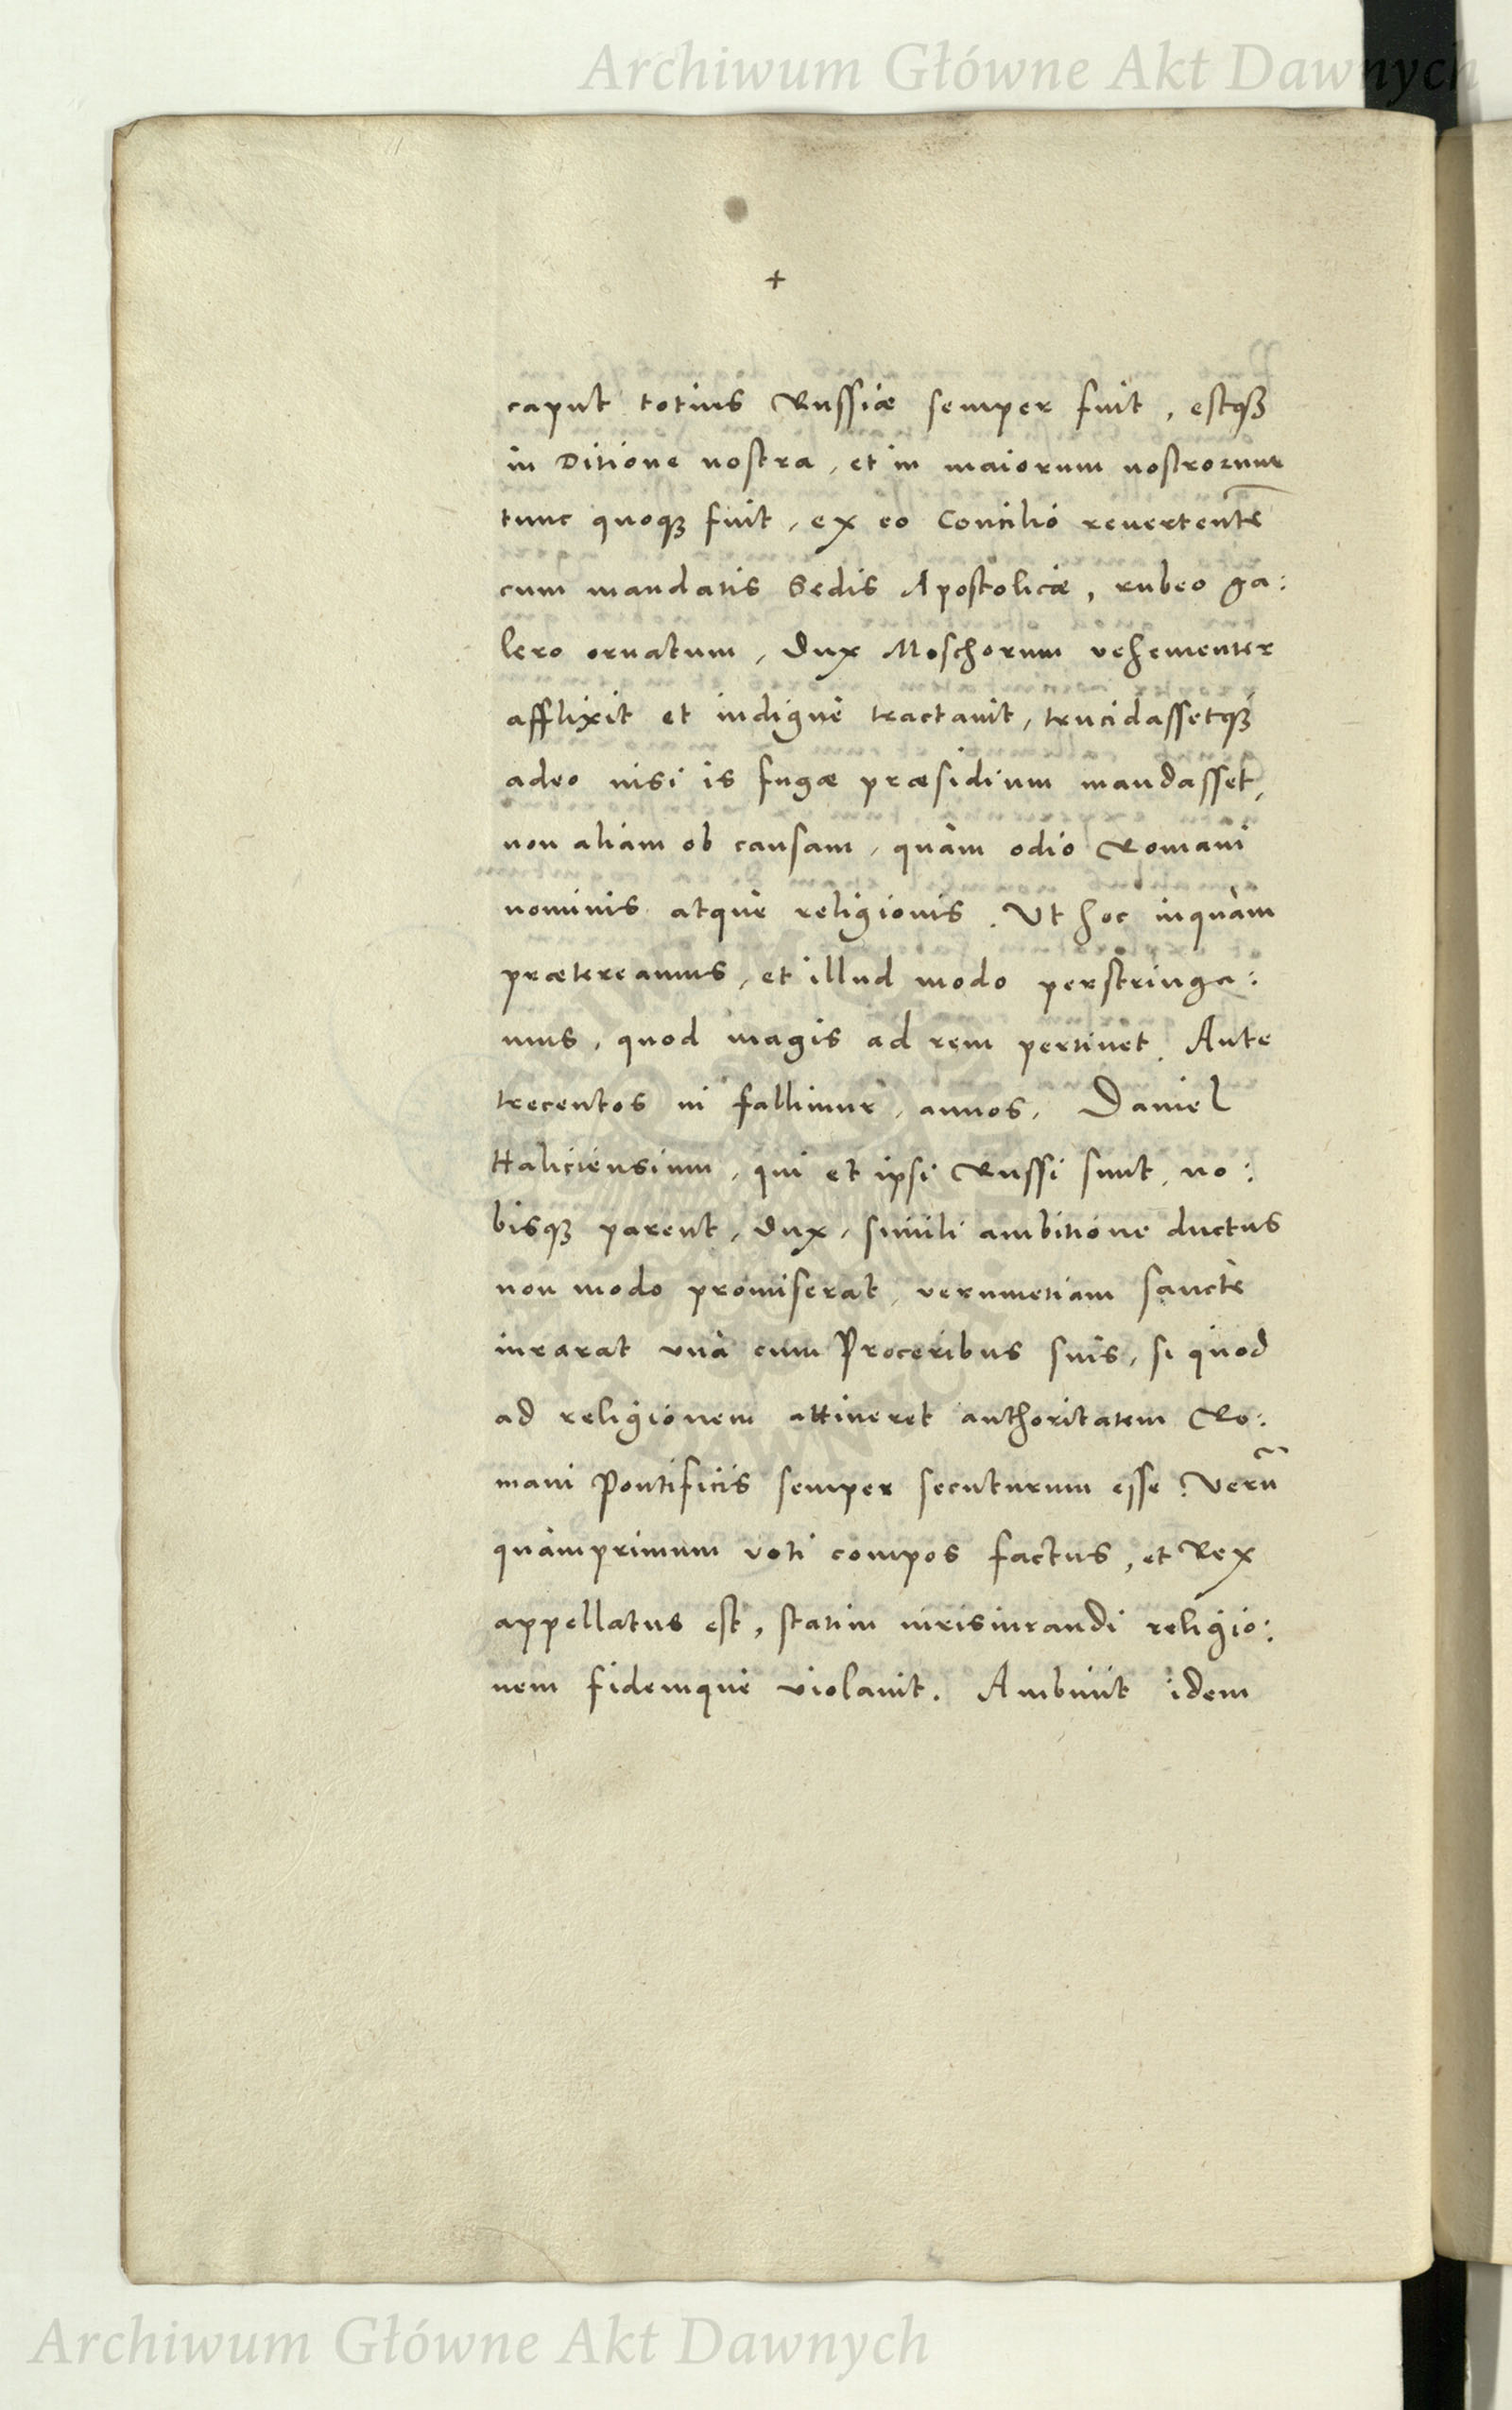 Archiwum Główne Akt Dawnych
+
caput totius Russiæ semper fuit, estqꝫ
in Ditione nostra, et in maiorum nostrorum
tunc quoqꝫ fuit, ex eo Concilio reuertentē
cum mandatis Sedis Apostolicæ, rubeo ga:
lero ornatum, Dux Moschorum vehementer
afflixit et indignè tractauit, trucidassetqꝫ
adeo nisi is fugæ præsidium mandasset,
non aliam ob causam, quàm odio Romani
nominis atque religionis. Vt hoc inquàm
prætereamus, et illud modo perstringa:
mus, quod magis ad rem pertinet. Ante
trecentos ni fallimur, annos, Daniel
Haliciensium, qui et ipsi Russi sunt, no:
bisqꝫ parent, Dux, simili ambitione ductus
non modo promiserat, verumetiam sanctè
iurarat vnà cum Proceribus suis, si quod
ad religionem attineret authoritatem Ro:
mani Pontificis semper secuturum esse. Verũ
quàmprimum voti compos factus, et Rex
appellatus est, statim iurisiurandi religio:
nem fidemque violauit. Ambiuit idem
Archiwum Główne Akt Dawnych